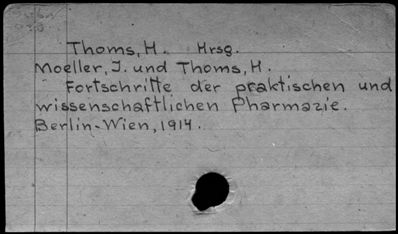 Thoms, H. Hrsg.
Moeller, J. und Thoms, H.
Fortschritte der praktischen und
wissenschaftlichen Pharmazie.
Berlin-Wien, 1914.